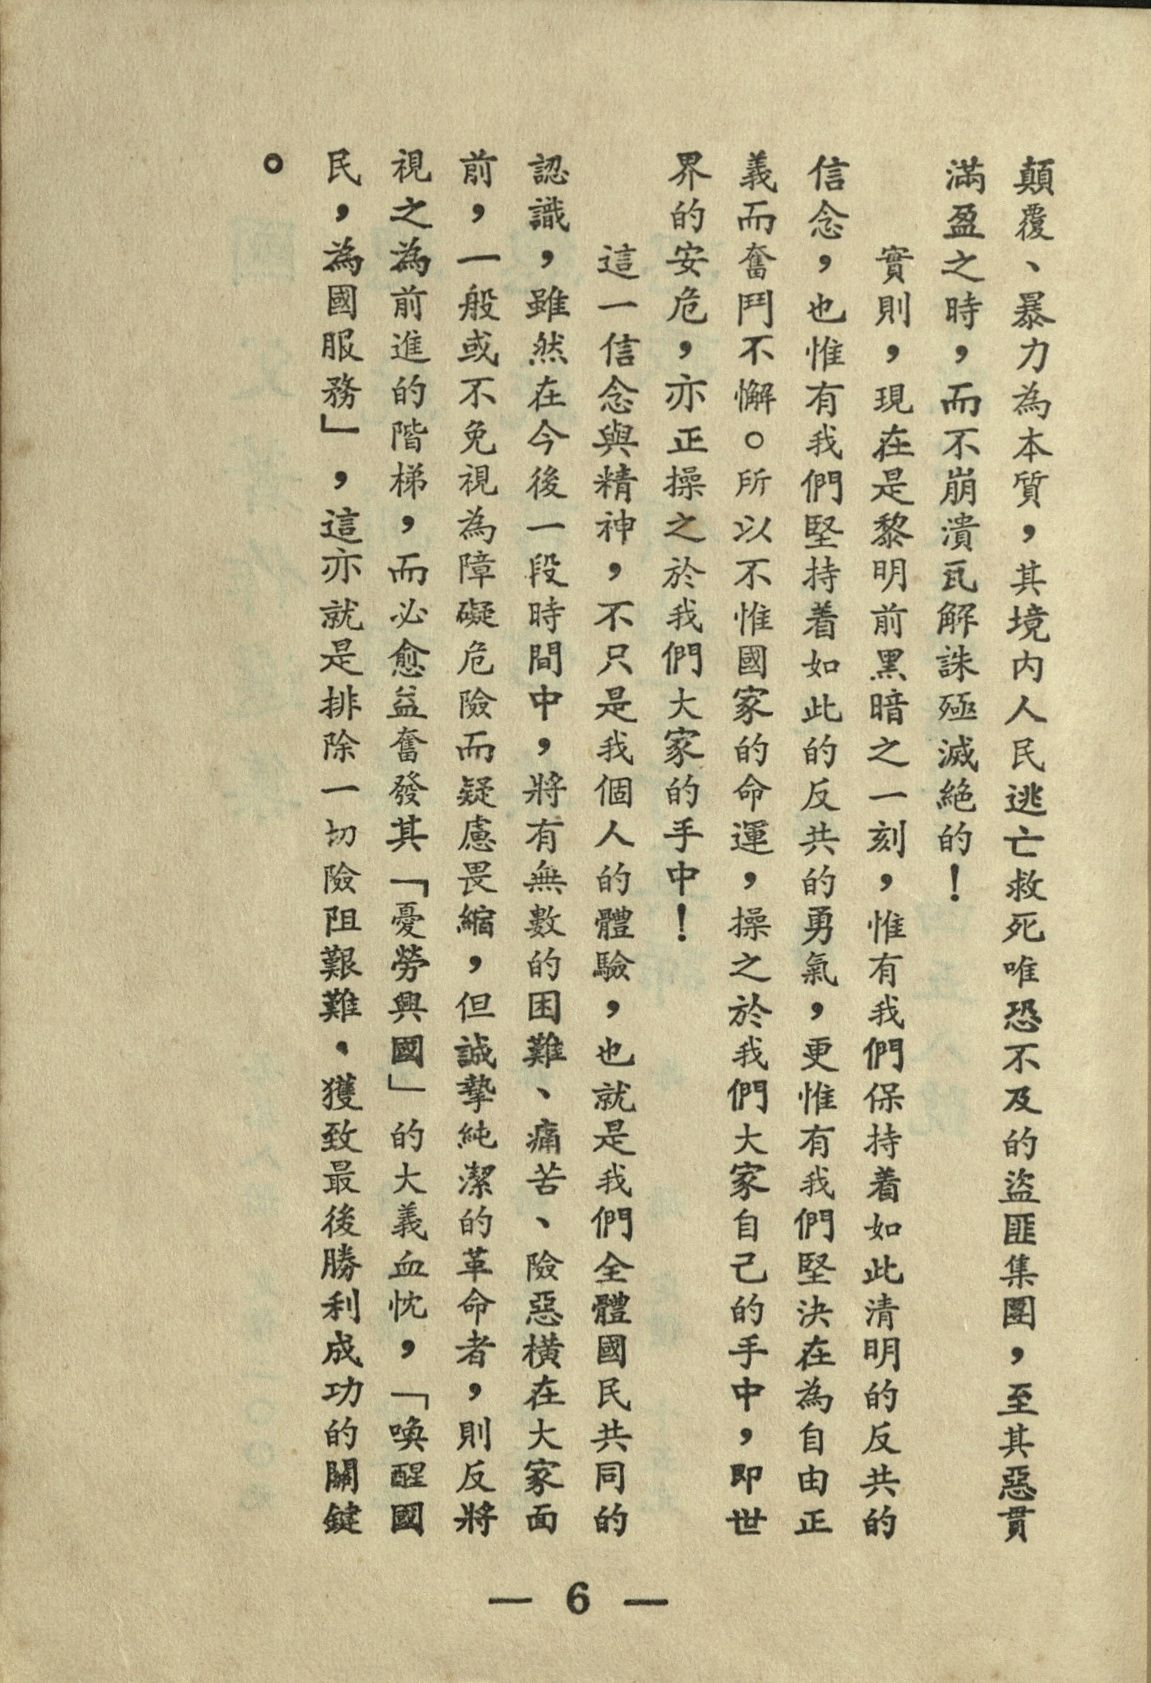 顛覆、暴力為本質，其境內人民逃亡救死唯恐不及的盜匪集團，至其惡貫
滿盈之時，而不崩潰瓦解誅殛滅絕的！
實則，現在是黎明前黑暗之一刻，惟有我們保持着如此清明的反共的
信念，也惟有我們堅持着如此的反共的勇氣，更惟有我們堅決在為自由正
義而奮鬥不懈。所以不惟國家的命運，操之於我們大家自己的手中，即世
界的安危，亦正操之於我們大家的手中！
這一信念與精神，不只是我個人的體驗，也就是我們全體國民共同的
認識，雖然在今後一段時間中，將有無數的困難、痛苦、險惡橫在大家面
前，一般或不免視為障礙危險而疑慮畏縮，但誠摯純潔的革命者，則反將
視之為前進的階梯，而必愈益奮發其「憂勞興國」的大義血忱，「喚醒國
民，為國服務」，這亦就是排除一切險阻艱難，獲致最後勝利成功的關鍵
。
— 6 —